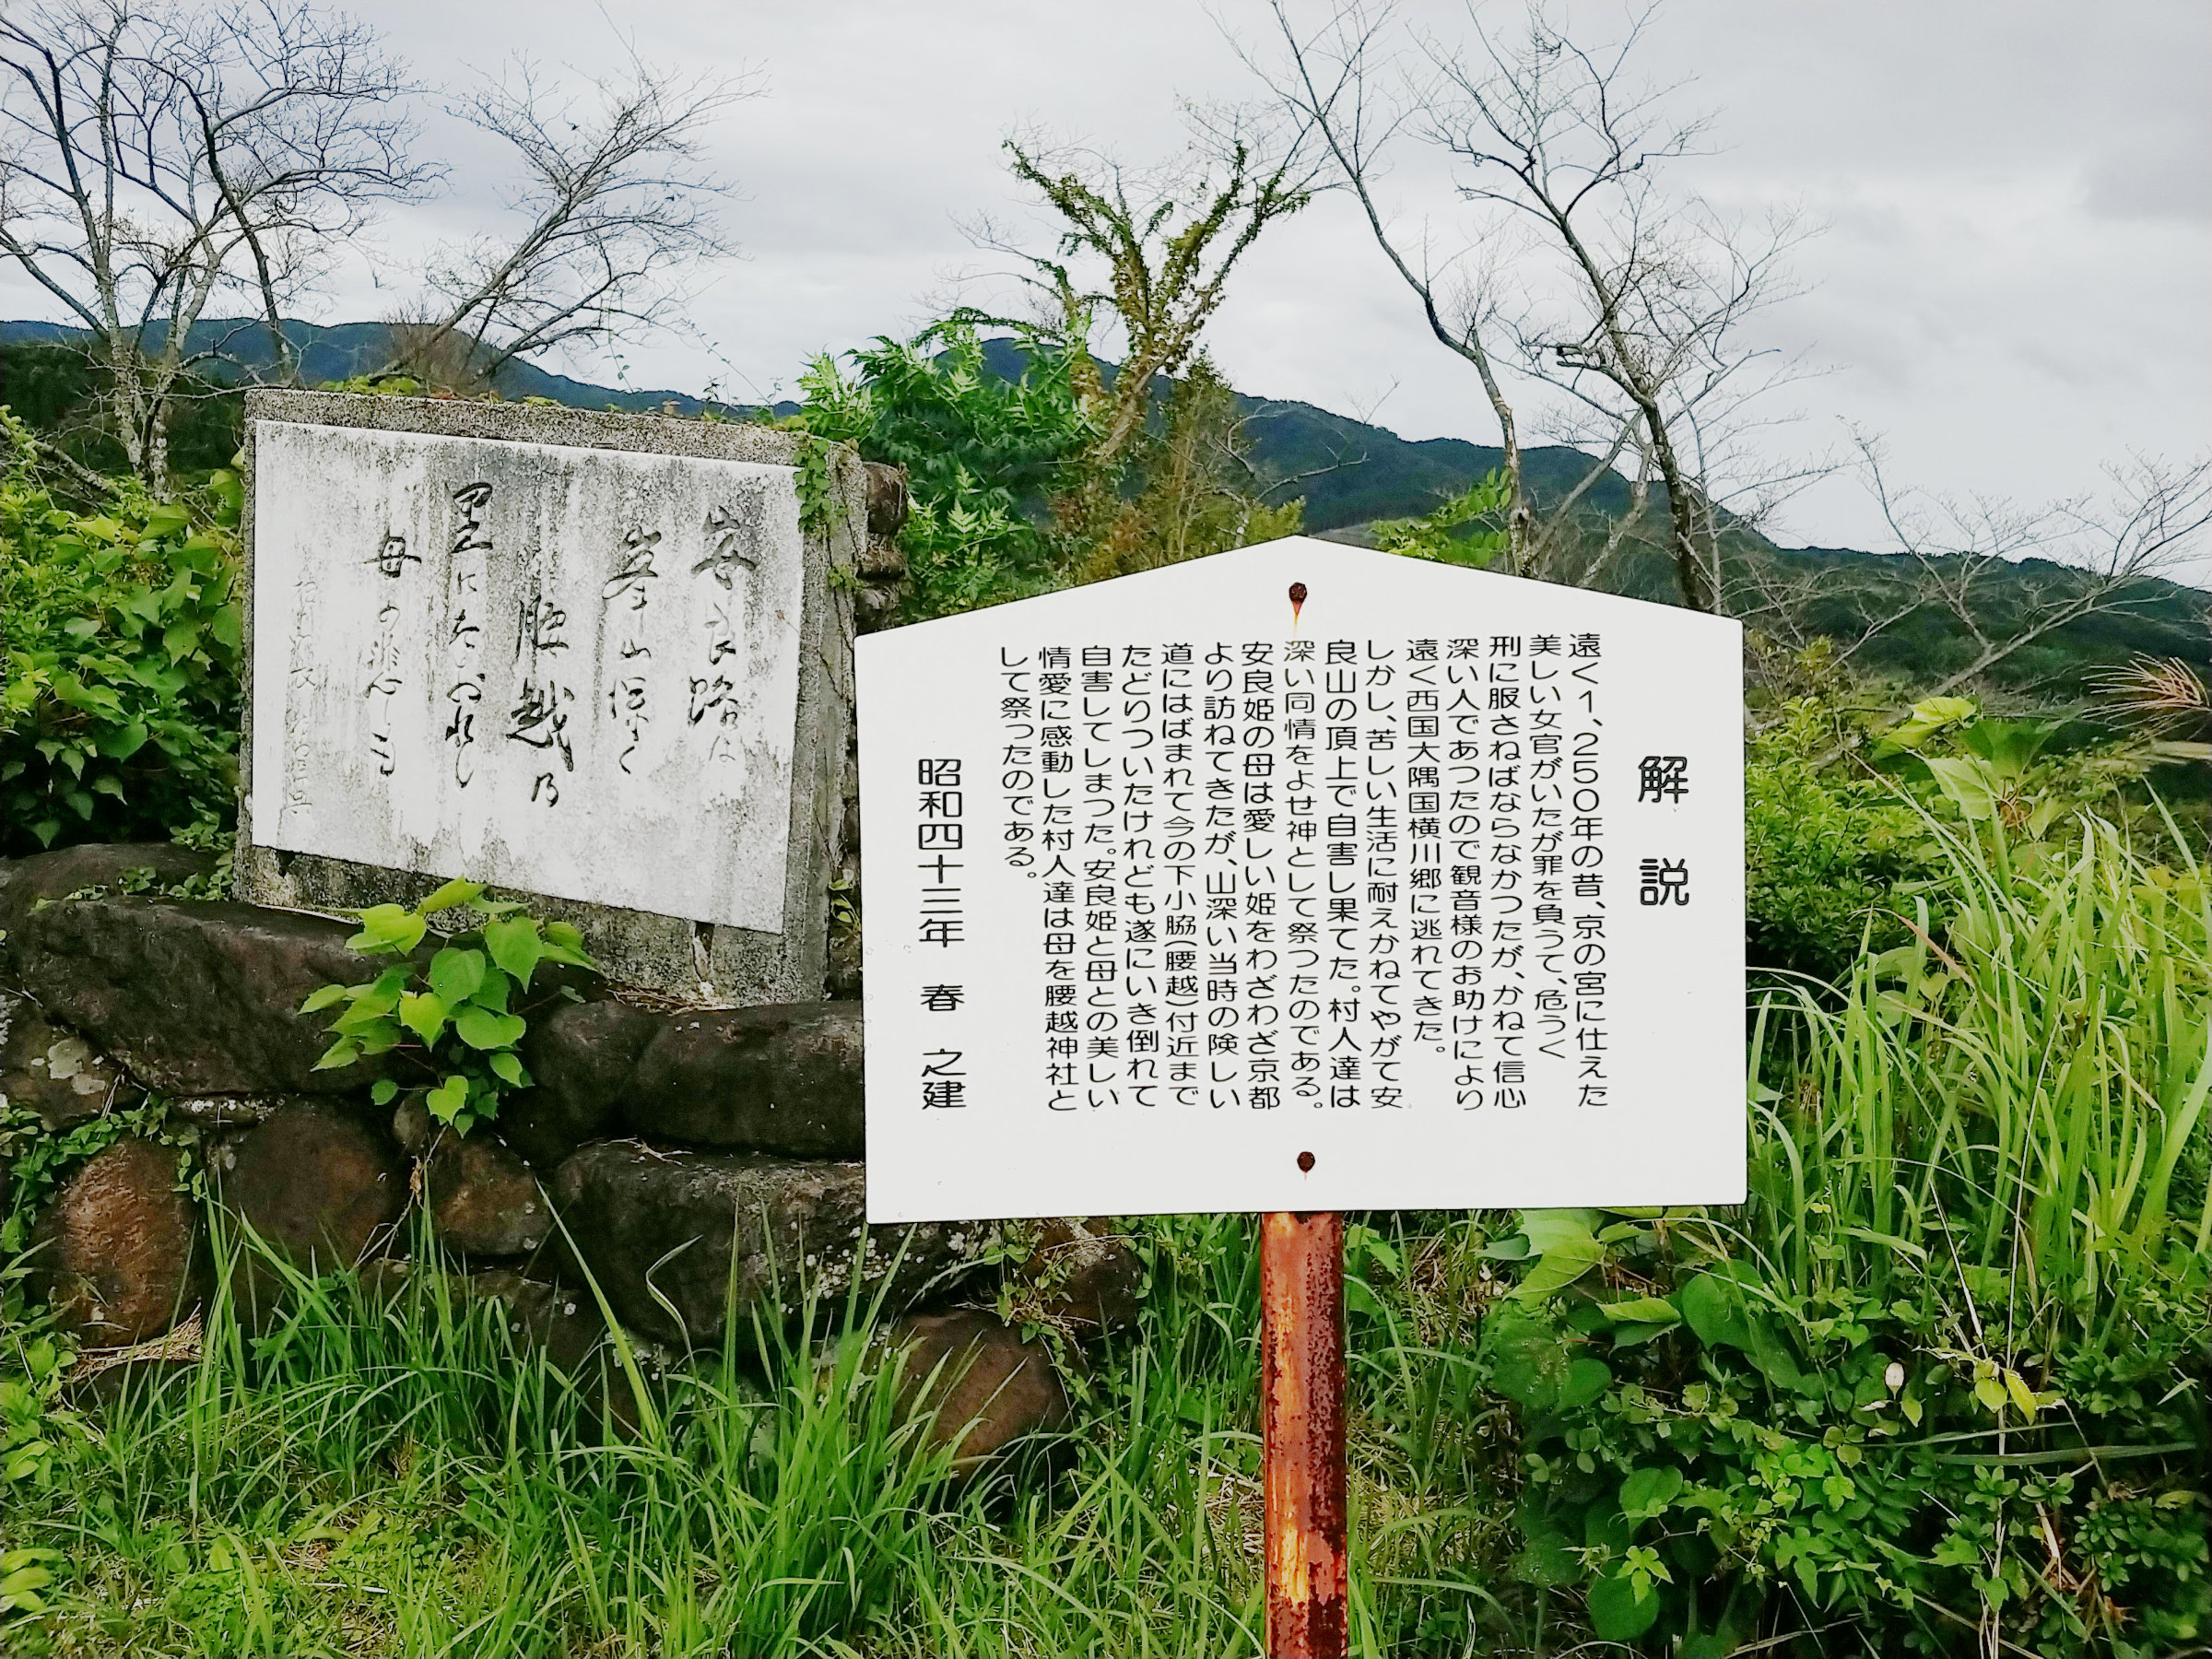 解説
遠く1、250年の昔、京の宮に仕えた
美しい女官がいたが罪を負うて、危うく
刑に服さねばならなかつたが、かねて信心
深い人であつたので観音様のお助けにより
遠く西国大隅国横川郷に逃れてきた。
しかし、苦しい生活に耐えかねてやがて安
良山の頂上で自害し果てた。村人達は
深い同情をよせ神として祭つたのである。
安良姫の母は愛しい姫をわざわざ京都
より訪ねてきたが、山深い当時の険しい
道にはばまれて今の下小脇(腰越)付近まで
たどりついたけれども遂にいき倒れて
自害してしまつた。安良姫と母との美しい
情愛に感動した村人達は母を腰越神社と
して祭つたのである。
昭和四十三年 春 之建
安良路は
峯山深く
腰越乃
里にたふれし
母の悲しも